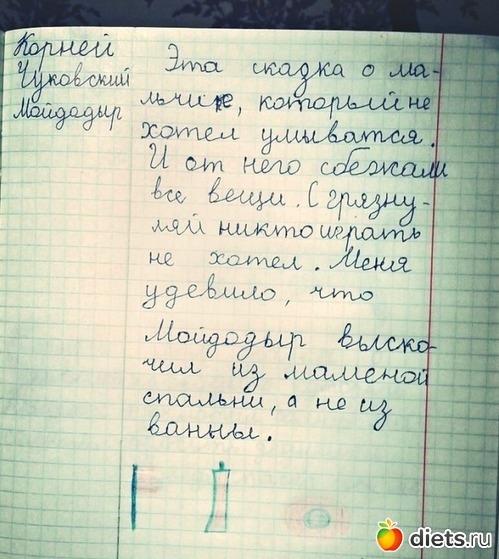 Корней
Чуковский
Мойдодыр
Эта сказка о ма-
льчике, который не
хотел умыватся.
И от него сбежали
все вещи. С грязну-
ляй никто играть
не хотел. Меня
удевило, что
Мойдодыр выско-
чил из маменой
спальни, а не из
ванны.
diets.ru